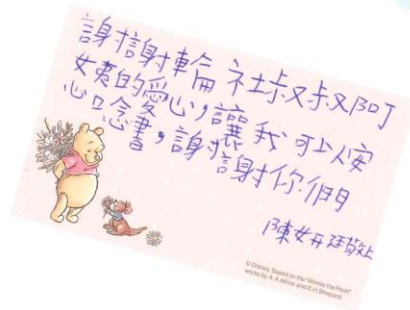 謝謝輪社叔叔阿
姨的愛心,讓我可以安
心唸書,謝謝你們
陳姸廷敬上
© Disney. Based on the "Winnie the Pooh"
works by A.A. Milne and E.H. Shepard.